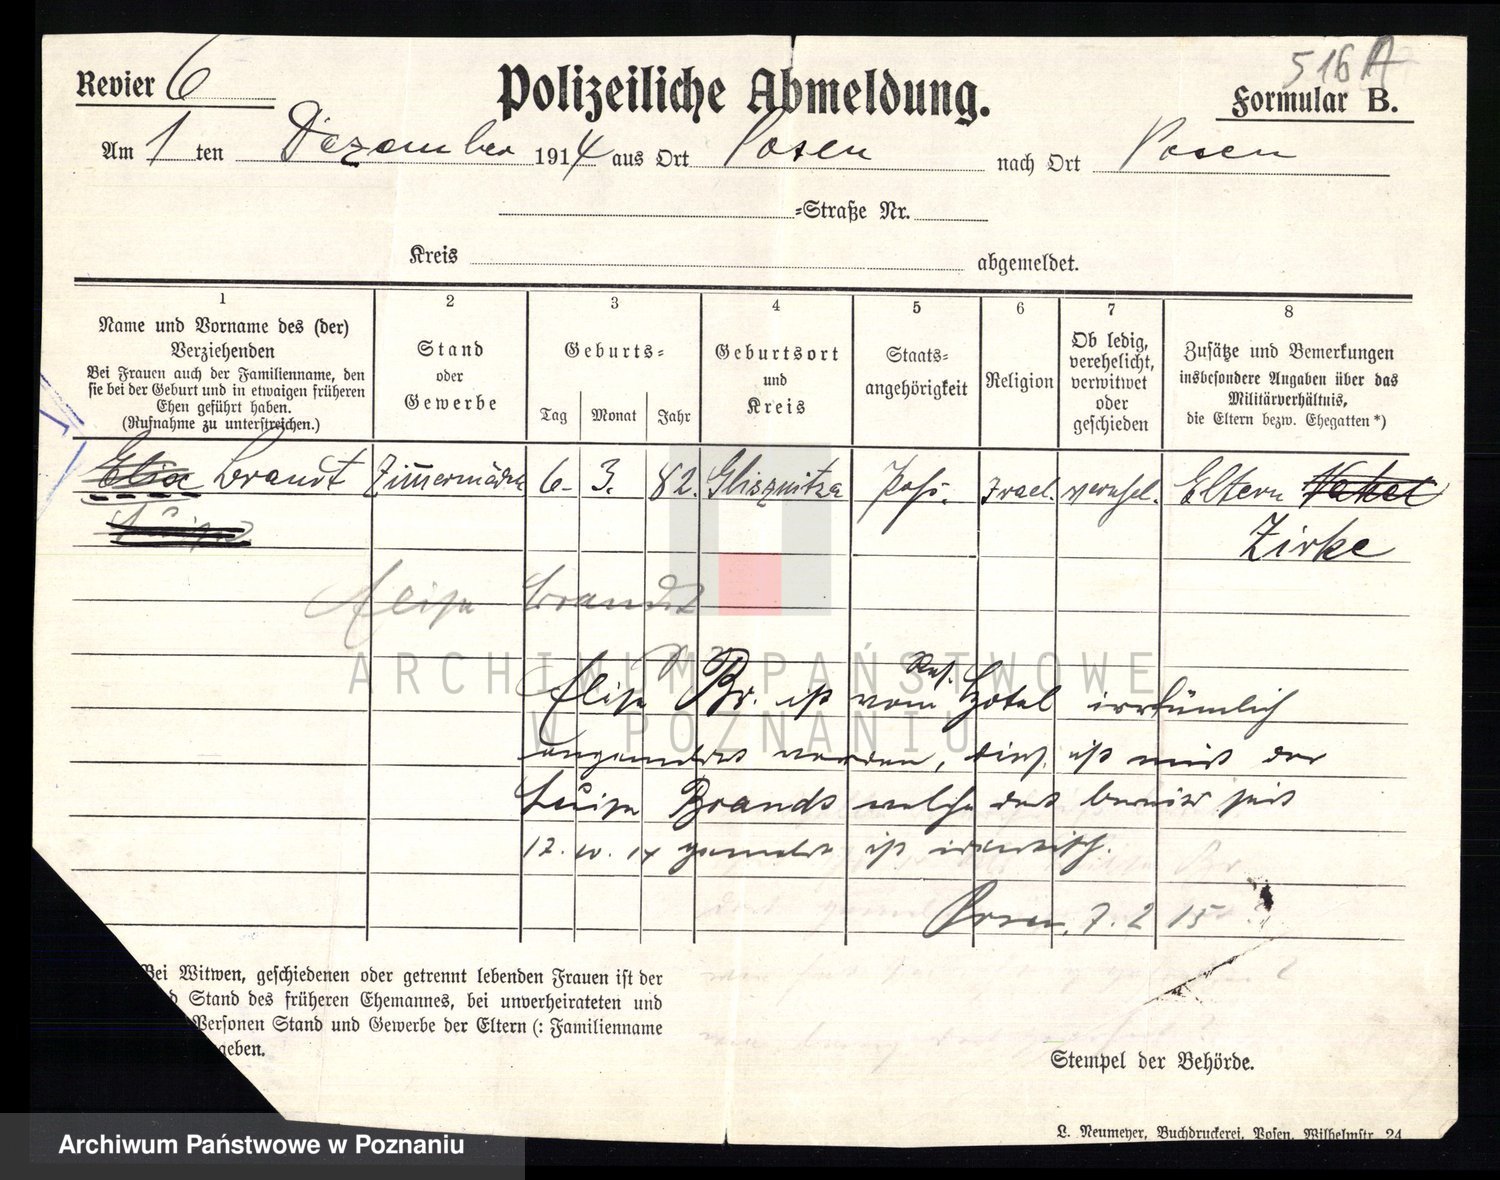 516 A
Revier 6
Polizeiliche Abmeldung.
Formular B.
Am 1 ten Dezember 1914 aus Ort Posen nach Ort Posen
=Straße Nr.
Kreis abgemeldet.
1 2 3 4 5 6 7 8
Name und Vorname des (der)
Verziehenden
Bei Frauen auch der Familienname, den
sie bei der Geburt und in etwaigen früheren
Ehen geführt haben.
(Rufnahme zu unterstreichen.)
Stand
oder
Gewerbe
Geburts=
Tag Monat Jahr
Geburtsort
und
Kreis
Staats=
angehörigkeit
Religion
Ob ledig,
verehelicht,
verwitwet
oder
geschieden
Zusätze und Bemerkungen
insbesondere Angaben über das
Militärverhältnis,
die Eltern bezw. Ehegatten *)
Brandt Zimmermädch 6. 3. 82. Israel. Eltern
Zirke
Elise Brandt
Elise Br. ist vom Hotel irrtümlich
angemeldet worden, ist mit der
Luise Brandt welche dort bereits seit
gemeldet ist identisch.
Posen, 7. 2 15
Bei Witwen, geschiedenen oder getrennt lebenden Frauen ist der
d Stand des früheren Ehemannes, bei unverheirateten und
Personen Stand und Gewerbe der Eltern (: Familienname
geben.
Stempel der Behörde.
L. Neumeyer, Buchdruckerei, Posen, Wilhelmstr. 24
ARCHIWUM PAŃSTWOWE
W POZNANIU
Archiwum Państwowe w Poznaniu